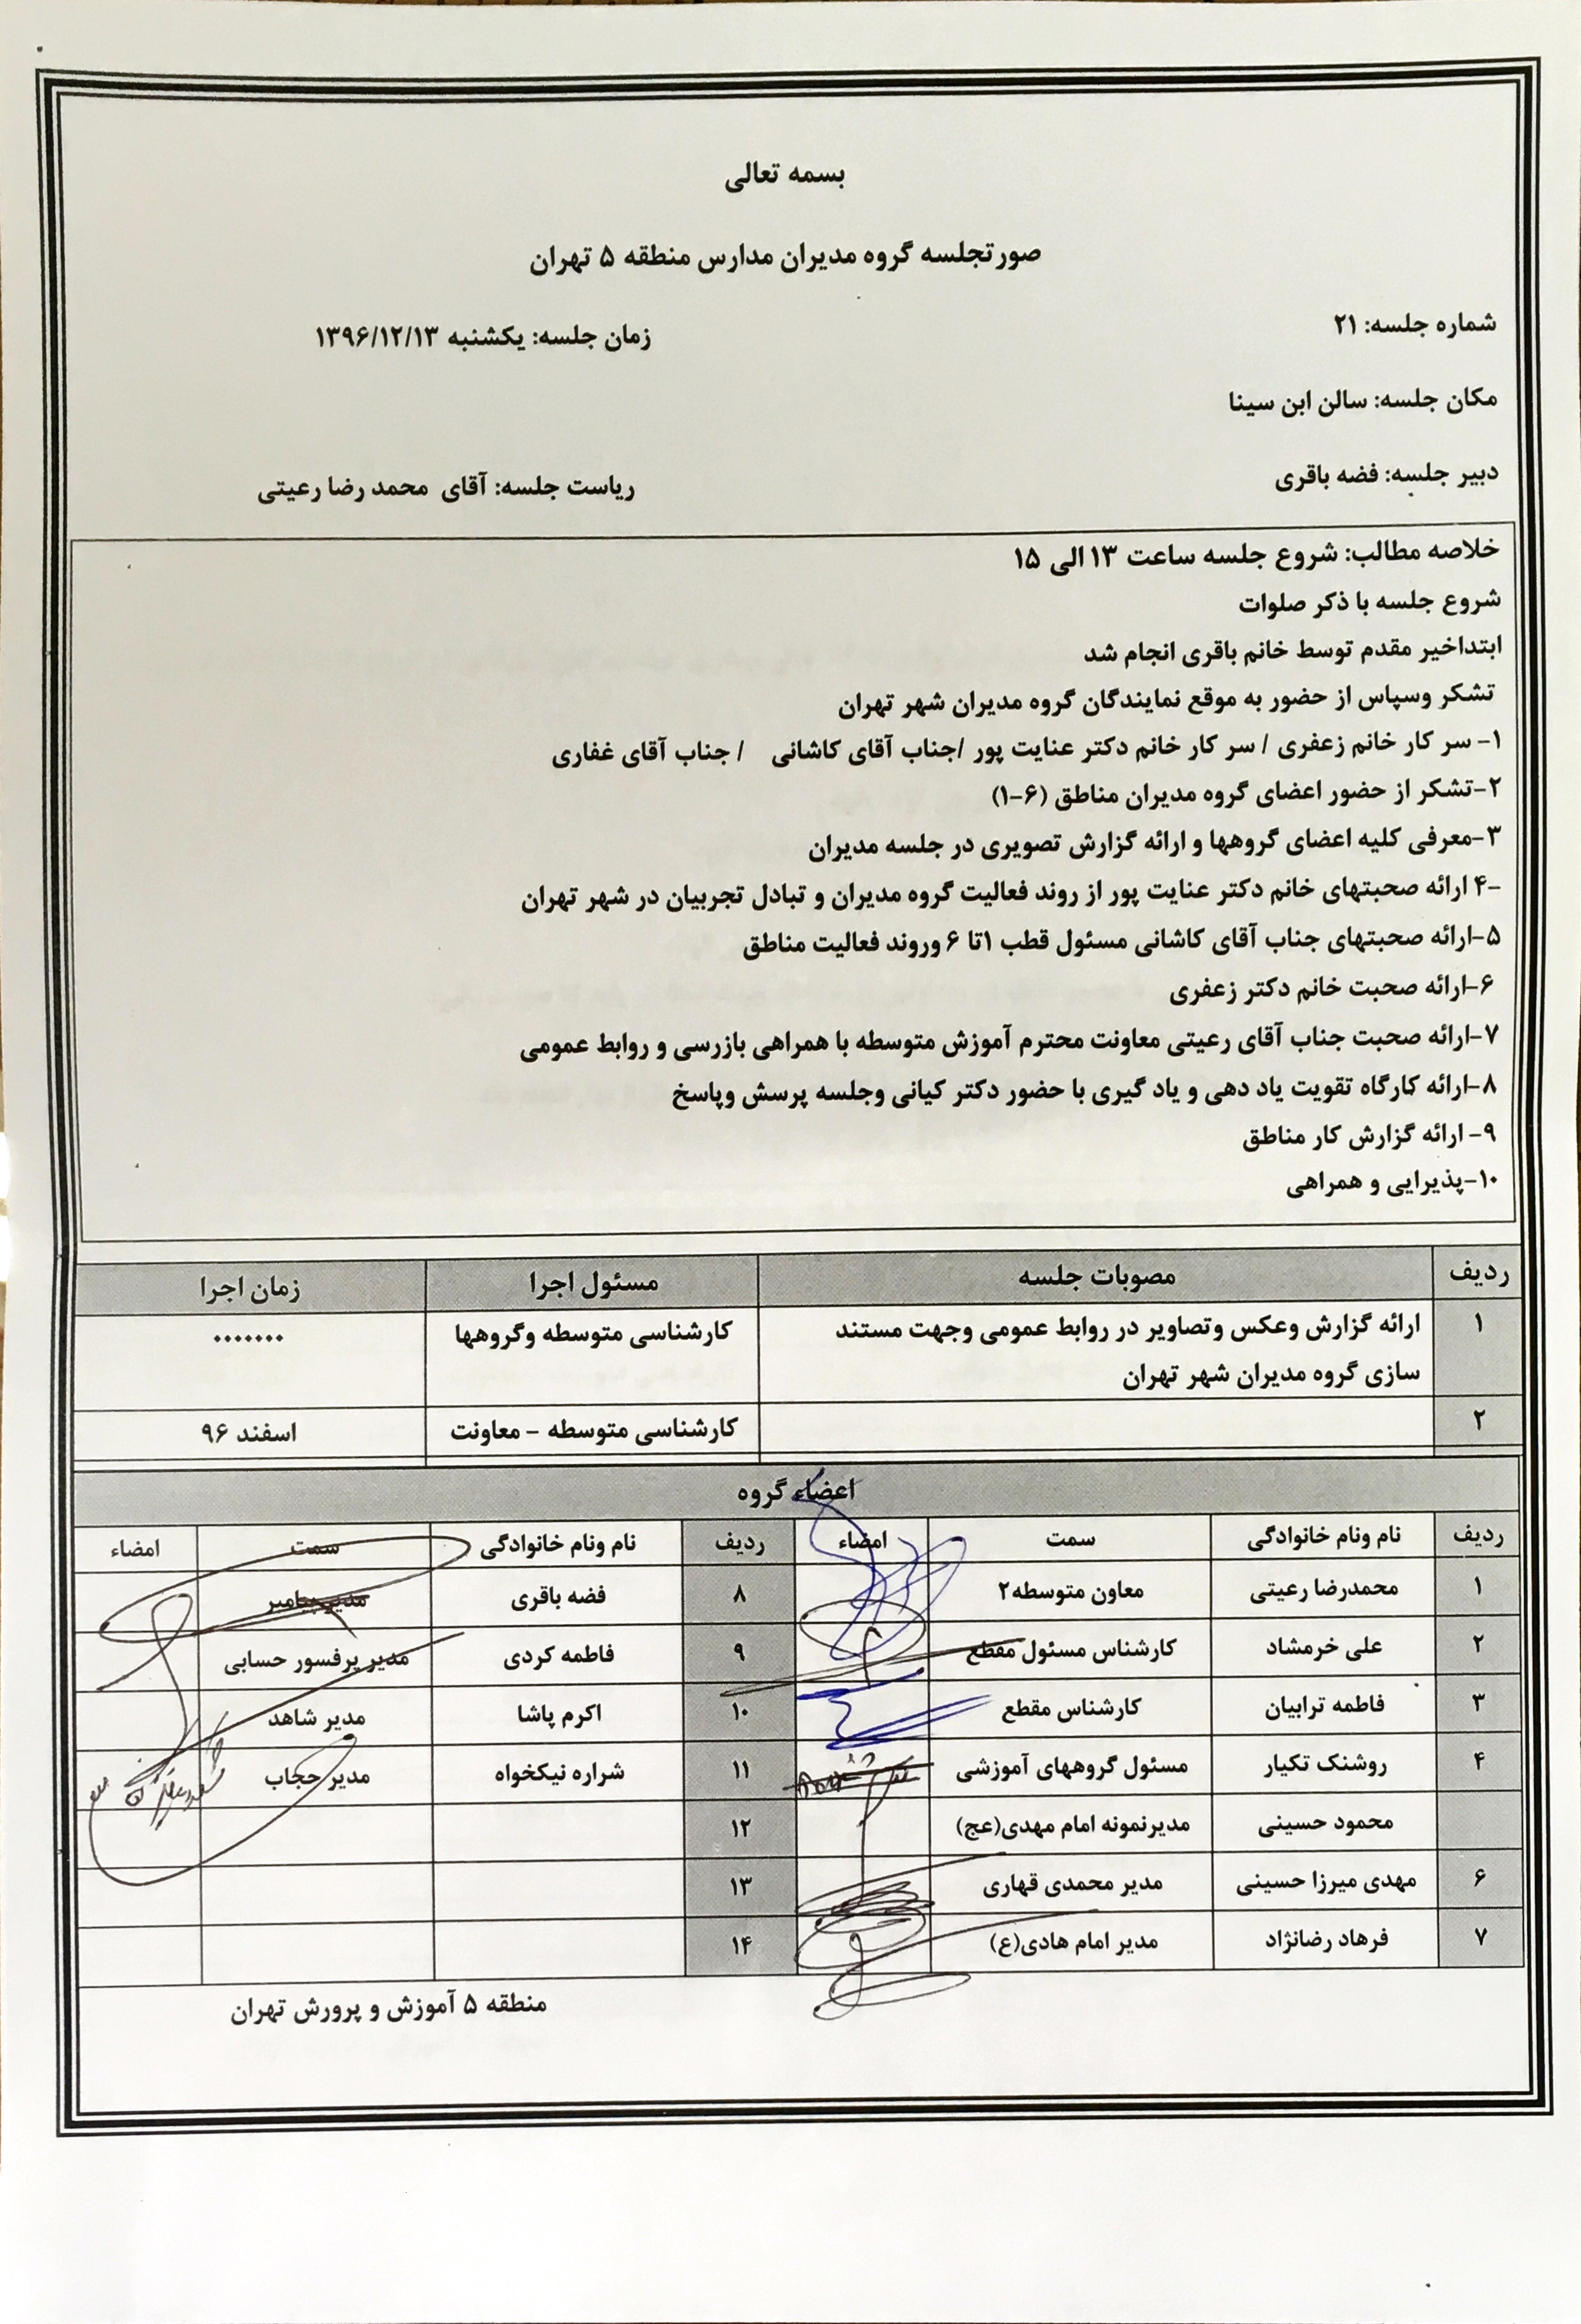 بسمه تعالی
صورتجلسه گروه مدیران مدارس منطقه ۵ تهران
شماره جلسه: ۲۱ زمان جلسه: یکشنبه ۱۳۹۶/۱۲/۱۳
مکان جلسه: سالن ابن سینا
دبیر جلسه: فضه باقری ریاست جلسه: آقای محمد رضا رعیتی
خلاصه مطالب: شروع جلسه ساعت ۱۳ الی ۱۵
شروع جلسه با ذکر صلوات
ابتداخیر مقدم توسط خانم باقری انجام شد
تشکر وسپاس از حضور به موقع نمایندگان گروه مدیران شهر تهران
۱- سر کار خانم زعفری / سر کار خانم دکتر عنایت پور /جناب آقای کاشانی / جناب آقای غفاری
۲-تشکر از حضور اعضای گروه مدیران مناطق (۶-۱)
۳-معرفی کلیه اعضای گروهها و ارائه گزارش تصویری در جلسه مدیران
-۴ ارائه صحبتهای خانم دکتر عنایت پور از روند فعالیت گروه مدیران و تبادل تجربیان در شهر تهران
۵-ارائه صحبتهای جناب آقای کاشانی مسئول قطب ۱تا ۶ وروند فعالیت مناطق
۶-ارائه صحبت خانم دکتر زعفری
۷-ارائه صحبت جناب آقای رعیتی معاونت محترم آموزش متوسطه با همراهی بازرسی و روابط عمومی
۸-ارائه کارگاه تقویت یاد دهی و یاد گیری با حضور دکتر کیانی وجلسه پرسش وپاسخ
۹- ارائه گزارش کار مناطق
۱۰-پذیرایی و همراهی
ردیف مصوبات جلسه مسئول اجرا زمان اجرا
۱ ارائه گزارش وعکس وتصاویر در روابط عمومی وجهت مستند کارشناسی متوسطه وگروهها .......
سازی گروه مدیران شهر تهران
۲ کارشناسی متوسطه - معاونت اسفند ۹۶
اعضاء گروه
ردیف نام ونام خانوادگی سمت امضاء ردیف نام ونام خانوادگی سمت امضاء
۱ محمدرضا رعیتی معاون متوسطه۲ ۸ فضه باقری مدیر پیامبر
۲ علی خرمشاد کارشناس مسئول مقطع ۹ فاطمه کردی مدیر پرفسور حسابی
۳ فاطمه ترابیان کارشناس مقطع ۱۰ اکرم پاشا مدیر شاهد
۴ روشنک تکیار مسئول گروههای آموزشی ۱۱ شراره نیکخواه مدیر حجاب
محمود حسینی مدیرنمونه امام مهدی(عج) ۱۲
۶ مهدی میرزا حسینی مدیر محمدی قهاری ۱۳
۷ فرهاد رضانژاد مدیر امام هادی(ع) ۱۴
منطقه ۵ آموزش و پرورش تهران